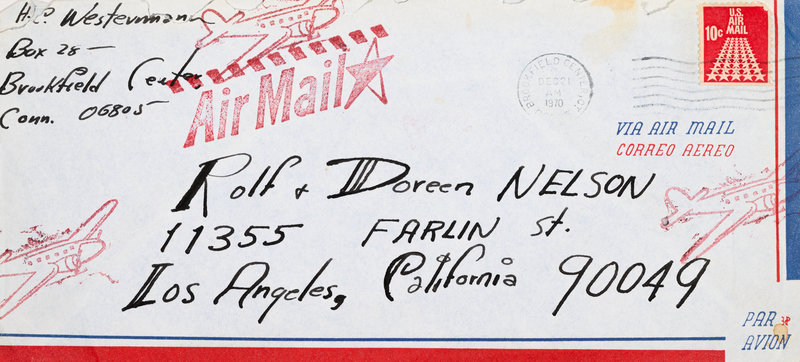 H.C. Westermann
Box 28 —
Brookfield Center
Conn. 06805
Air Mail
BROOKFIELD CENTER, CT
DEC 21
AM
1970
U.S.
AIR
MAIL
10c
VIA AIR MAIL
CORREO AEREO
Rolf + Doreen NELSON
11355 FARLIN St.
Los Angeles, California 90049
PAR
AVION